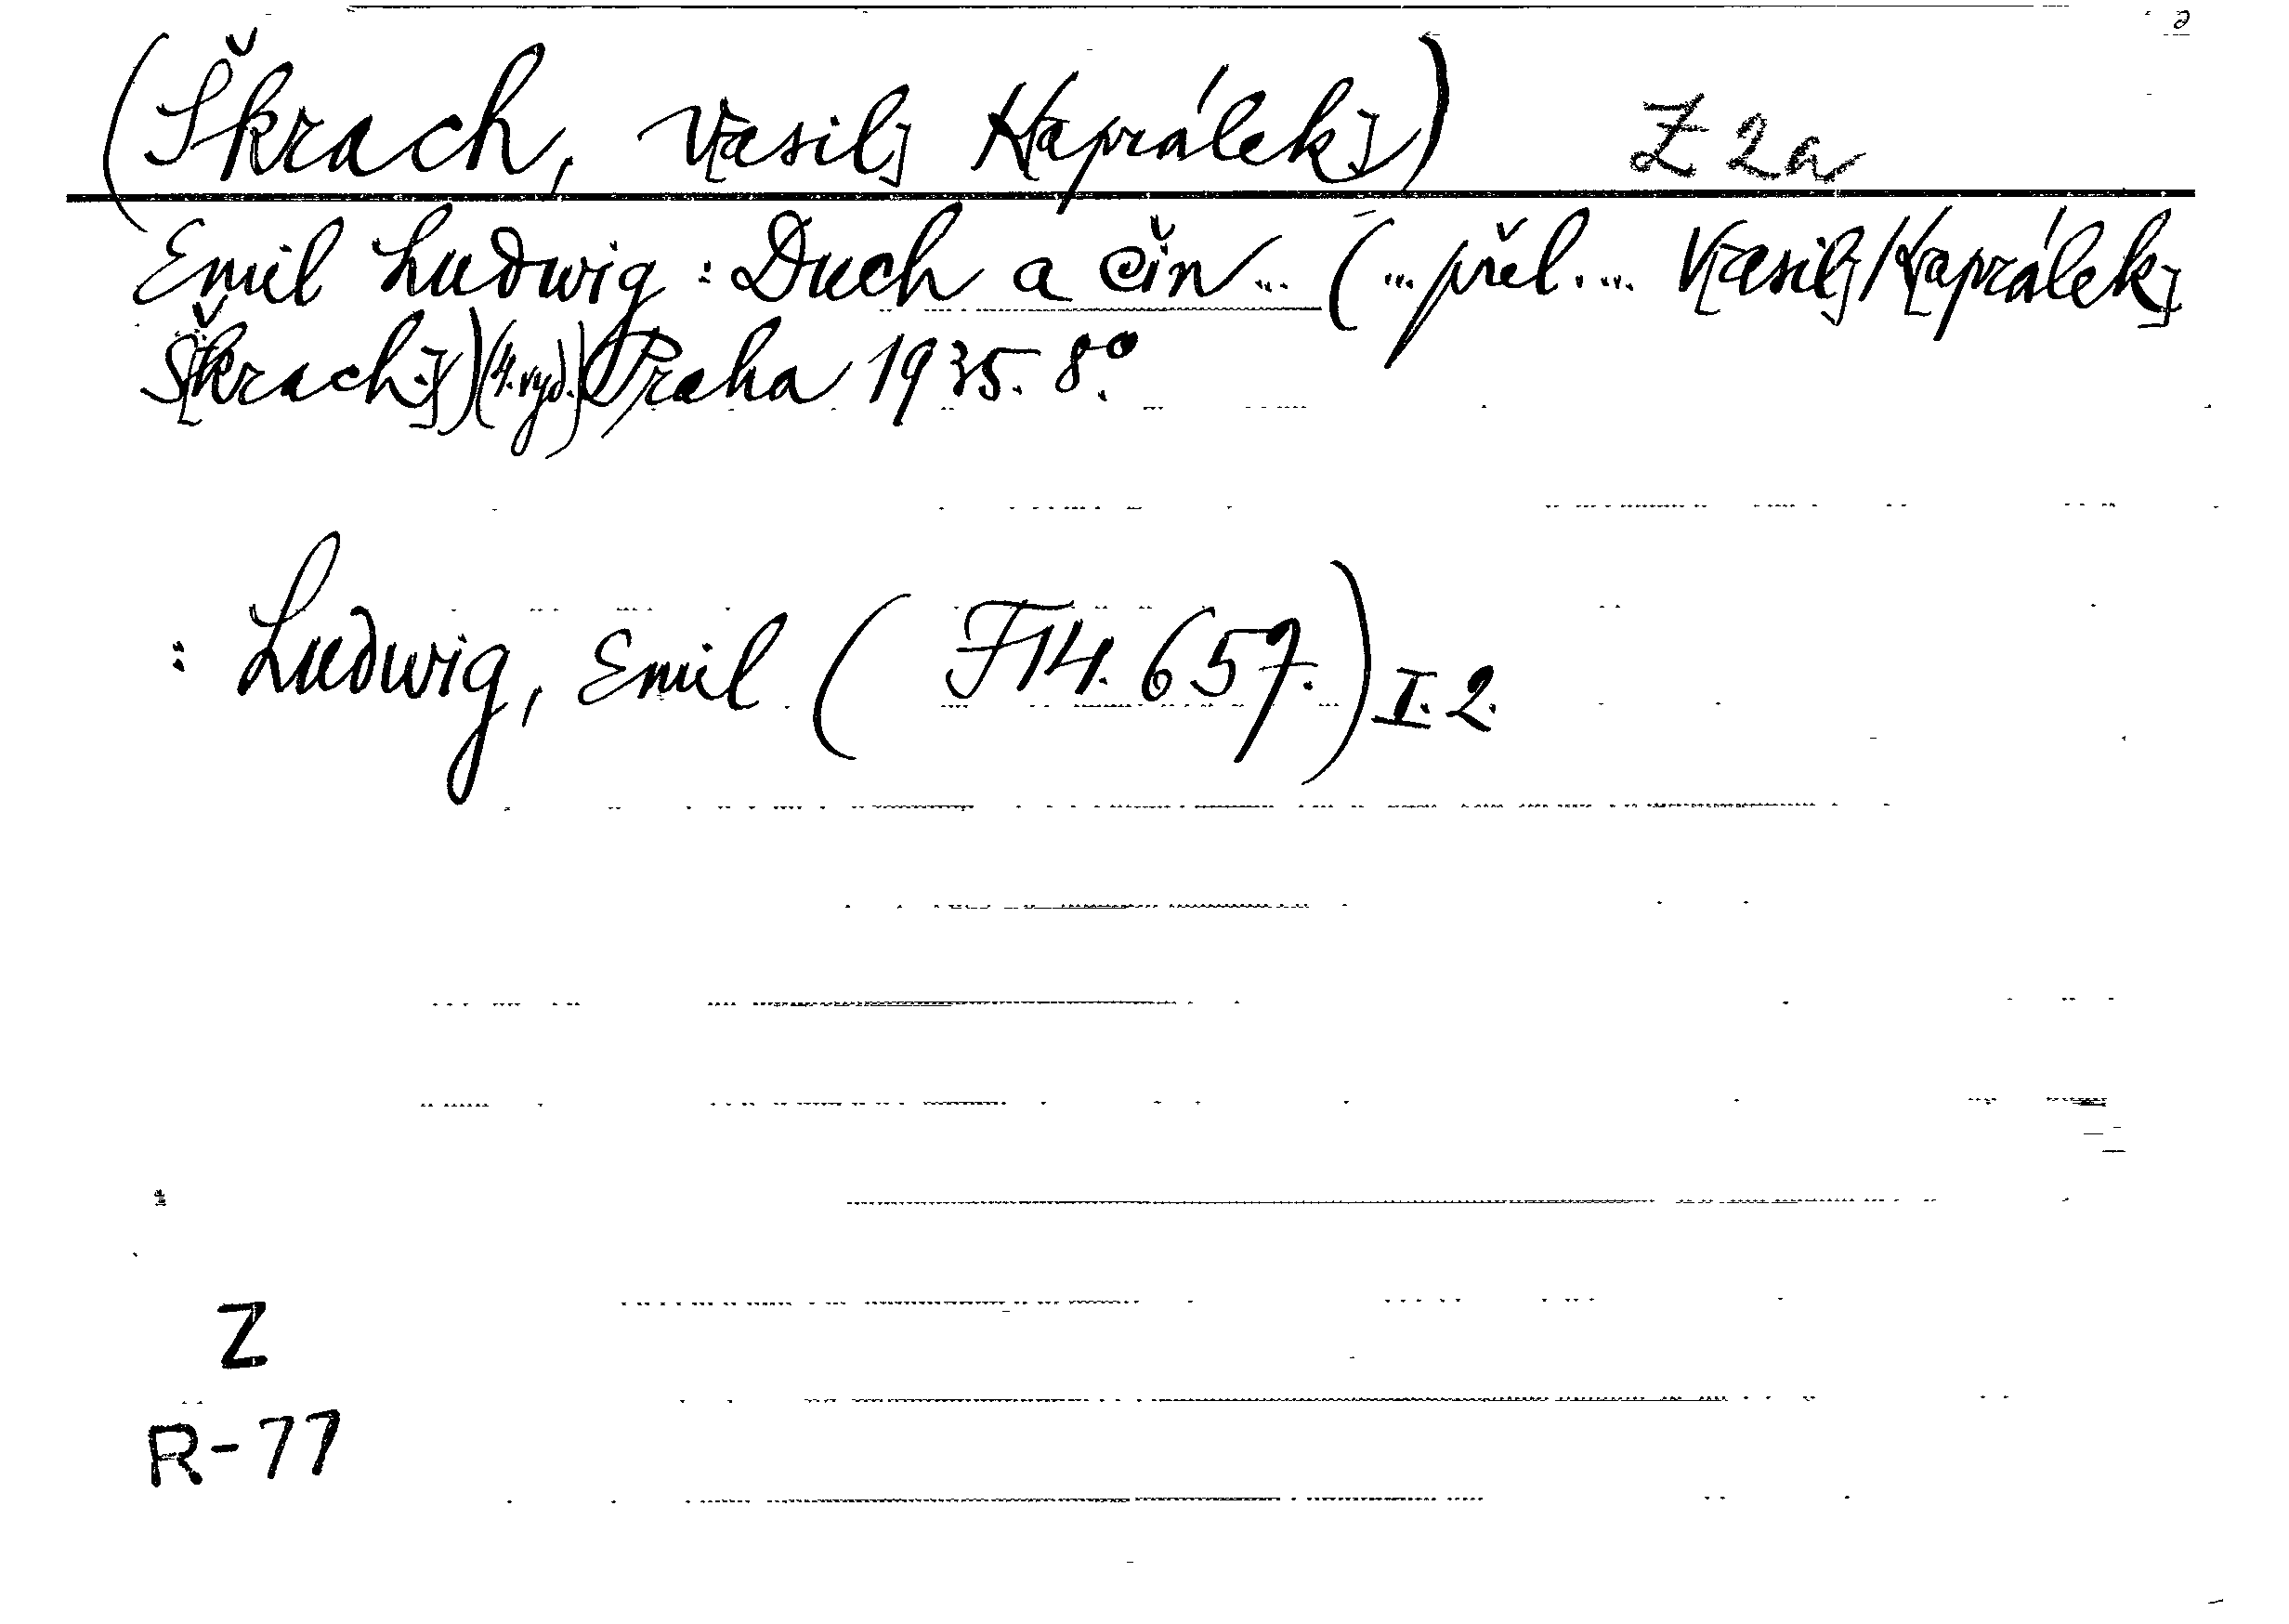 (Škrach, V[asil] K[aprálek]) Z 2a
Emil Ludwig: Duch a čin... (...přel.... V[asil] K[aprálek]
Š[krach.]) (4. vyd.) Praha 1935. 8°.
: Ludwig, Emil (F 14.657.) I. 2.
Z
R-77